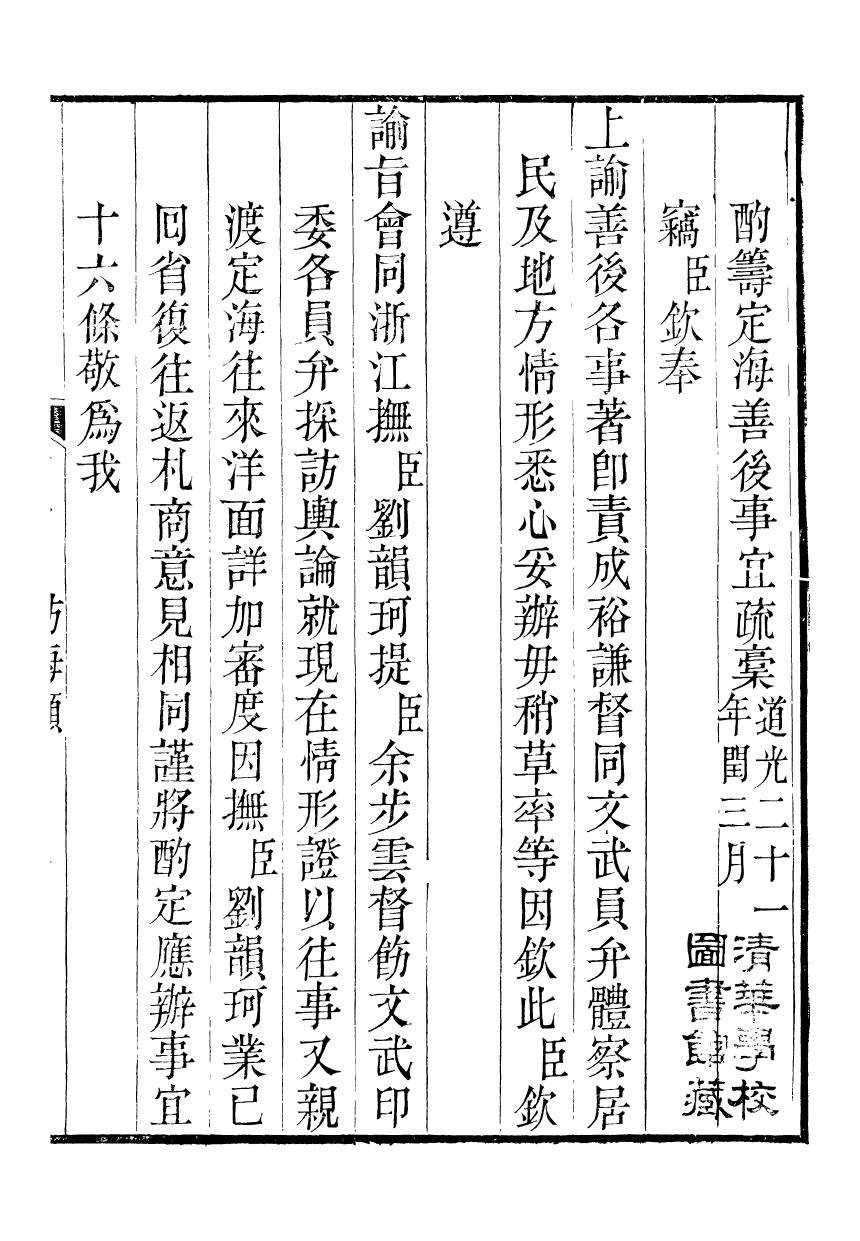 酌籌定海善後事宜疏稾道光二十一年閏三月
清華學校
圖書館藏
竊臣欽奉
上諭善後各事著卽責成裕謙督同文武員弁體察居
民及地方情形悉心妥辦毋稍草率等因欽此臣欽
遵
諭旨會同浙江撫臣劉韻珂提臣余步雲督飭文武印
委各員弁採訪輿論就現在情形證以往事又親
渡定海往來洋面詳加審度因撫臣劉韻珂業已
囘省復往返札商意見相同謹將酌定應辦事宜
十六條敬爲我